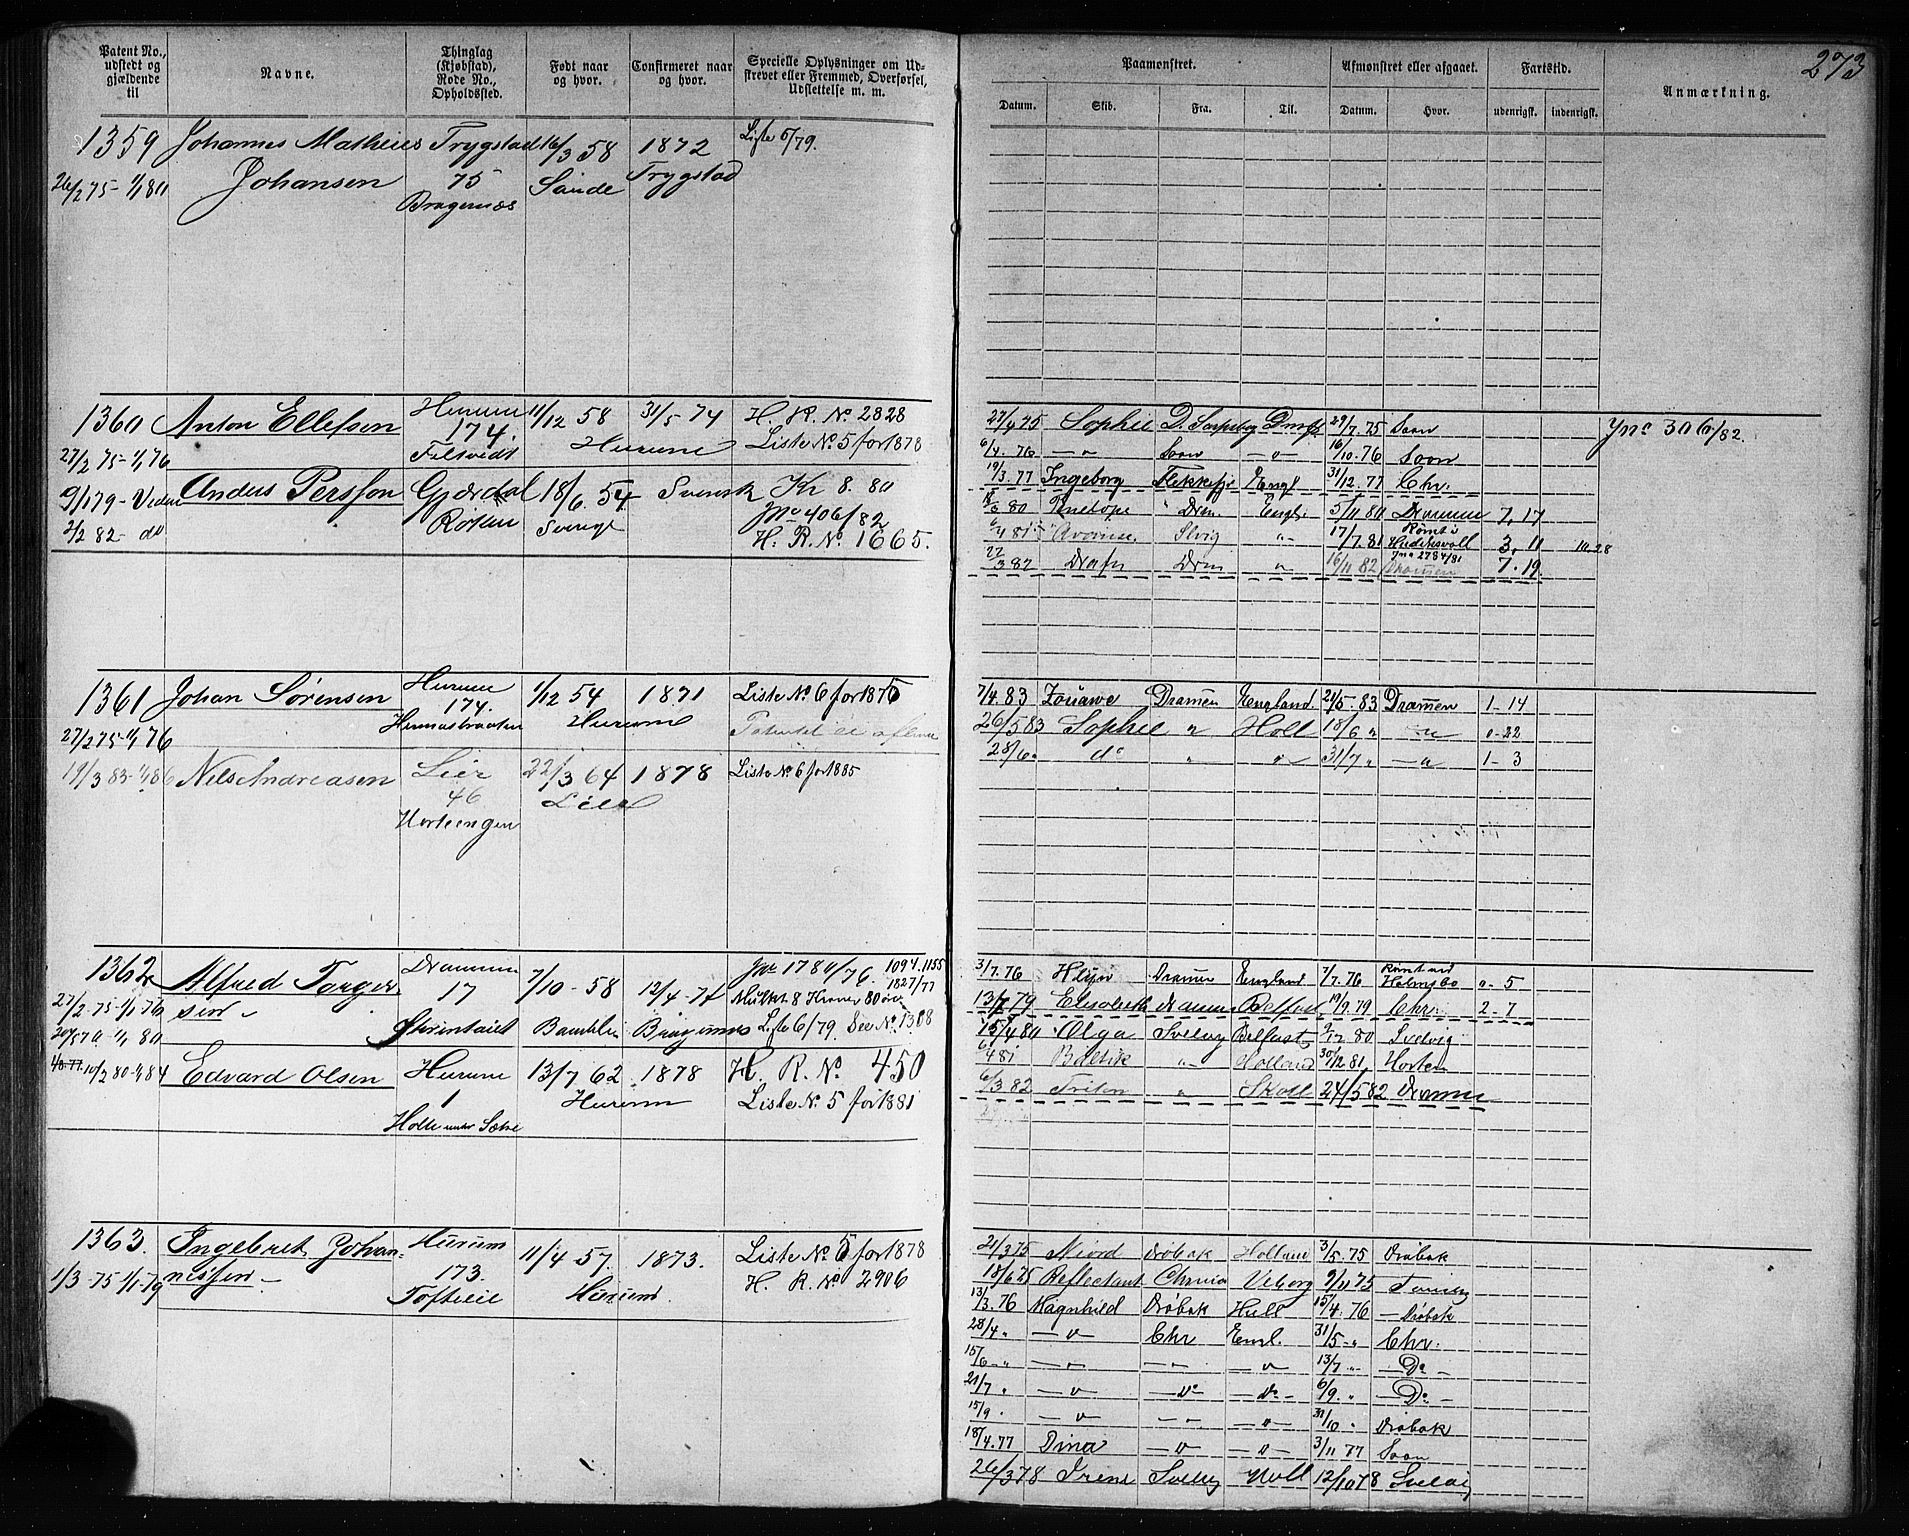 273
Patent No., udstedt og gjældende til
Navne.
Thinglag (Kjøbstad), Rode No., Opholdssted.
Født naar og hvor.
Confirmeret naar og hvor.
Specielle Oplysninger om Udskrevet eller Fremmed, Overførsel, Udslettelse m. m.
Paamønstret.
Afmønstret eller afgaaet.
Fartstid.
Anmærkning.
Datum. Skib. Fra. Til. Datum. Hvor. udenrigsk. indenrigsk.
1359 Johannes Mathias Trygstad 16/3 58 1872 Liste 6/79.
26/2 75 - 1/1 80 Johansen 75 Sande Trygstad
Bragernæs
1360 Anton Ellefsen Hurum 11/12 58 31/5 74 H. R. No. 2828
27/2 75 - 1/1 76 174. Filtvedt Hurum Liste No. 5 for 1878
Anders Persson 18/6 54 Svensk Kr 8. 80
2/2 82 - do Røken Sverige Jno 406/82
H. R. No. 1665.
27/4 75 Sophie D. Sarpsborg 29/7 75 Soon Jno 306/82.
6/4 76 — " Soon — " — 16/10 76 Soon
19/3 77 Ingeborg Flekkefj Engl 31/12 77 Chr.
80 Penelope Dram. Engl. 5/11 80 Drammen 7, 17
81 Slvig " 17/7 81 Rømt i Hudiksvall 3, 11 10.28
Jno 2784/81
22/3 82 Drafn Drm " 16/11 82 Drammen 7. 19
1361 Johan Sørensen Hurum 1/12 54 1871 Liste No. 6 for 1875
27/2 75 - 1/1 76 174. Hurum
19/3 83 - 1/1 86 Nils Andreasen Lier 22/3 64 1878 Liste No. 6 for 1885
46 Lier
7/4 83 Zouave Dramen England 21/5 83 Dramen 1 - 14
26/5 83 Sophie " Holl 18/6 " — " 0 - 22
28/6 " do " " 31/7 " — " 1 - 3
1362 Alfred Torger- Drammen 7/10 - 58 12/4 - 74 Jno 1780/76. 1094. 1155
27/2 - 75 - 1/1 76 sen 17 1827/77
Mulkt 8 Kroner 80 øre
Bamble Bragernæs Liste 6/79. See No. 1308
10/2 80 - 1/1 84 Edvard Olsen Hurum 13/7 62 1878 H. R. No. 450
1 Hurum Liste No. 5 for 1881
Holte under Sætre
3/7 76 Dramen England 7/7 76 Rømt ved Holmsbo 0 - 5
79 Elisabeth Dramen Belfast 19/9 79 Chr. 2 - 7
15/4 80 Olga Svelvig Belfast 80 Svelvig
6/4 81 Baltik " Holland 30/12 81 Horten
6/3 82 Triton " Skotl 24/5 82 Drammen
1363. Ingebret Johan- Hurum 11/4 - 57. 1873. Liste No. 5 for 1878
1/3 - 75 1/1 - 79 nessen — 173. Hurum H. R. No. 2906
Tofteeie
21/3 75 Niord Drøbak Holland 3/5 75 Drøbak
18/6 75 Reflectant Chrania Viborg 9/11 75
13/3 76 Ragnhild Drøbak Hull 15/4 76 — Drøbak
28/4 " — " — Chr Engl. 31/5 - " Chr.
15/6 - " — " — — " — — " 13/7 " — Do —
21/7 " — " — Do — — Do — 6/9 " — Do —
15/9 " — " — — " — — " — 31/10 " Drøbak
18/4 77 Dina — " — — " — 3/11 77 Soon
26/3 78 Irene Svelvig Holl 12/10 78 Svelvig